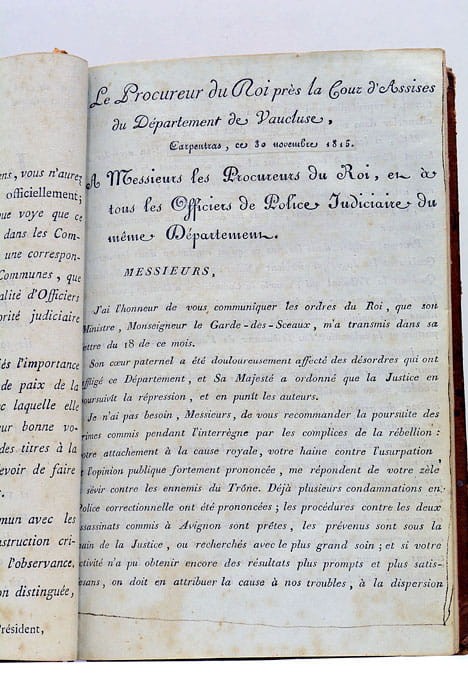 ens, vous n'aurez
officiellement;
que voye que ce
dans les Com-
une correspon-
Communes, que
alité d'Officiers
orité judiciaire
és l'importance
de paix de la
c laquelle elle
ur bonne vo-
des titres à la
evoir de faire
mun avec les
struction cri-
l'observance.
on distinguée,
Président,
Le Procureur du Roi près la Cour d'Assises
du Département de Vaucluse,
Carpentras, ce 30 novembre 1815.
A Messieurs les Procureurs du Roi, et à
tous les Officiers de Police Judiciaire du
même Département.
MESSIEURS,
J'ai l'honneur de vous communiquer les ordres du Roi, que son
Ministre, Monseigneur le Garde-des-Sceaux, m'a transmis dans sa
ettre du 18 de ce mois.
Son cœur paternel a été douloureusement affecté des désordres qui ont
affligé ce Département, et Sa Majesté a ordonné que la Justice en
poursuivît la répression, et en punît les auteurs.
Je n'ai pas besoin, Messieurs, de vous recommander la poursuite des
rimes commis pendant l'interrègne par les complices de la rébellion :
otre attachement à la cause royale, votre haine contre l'usurpation
t l'opinion publique fortement prononcée, me répondent de votre zèle
sévir contre les ennemis du Trône. Déjà plusieurs condamnations en
Police correctionnelle ont été prononcées ; les procédures contre les deux
ssassinats commis à Avignon sont prêtes, les prévenus sont sous la
ain de la Justice, ou recherchés avec le plus grand soin ; et si votre
ctivité n'a pu obtenir encore des résultats plus prompts et plus satis-
esans, on doit en attribuer la cause à nos troubles, à la dispersion